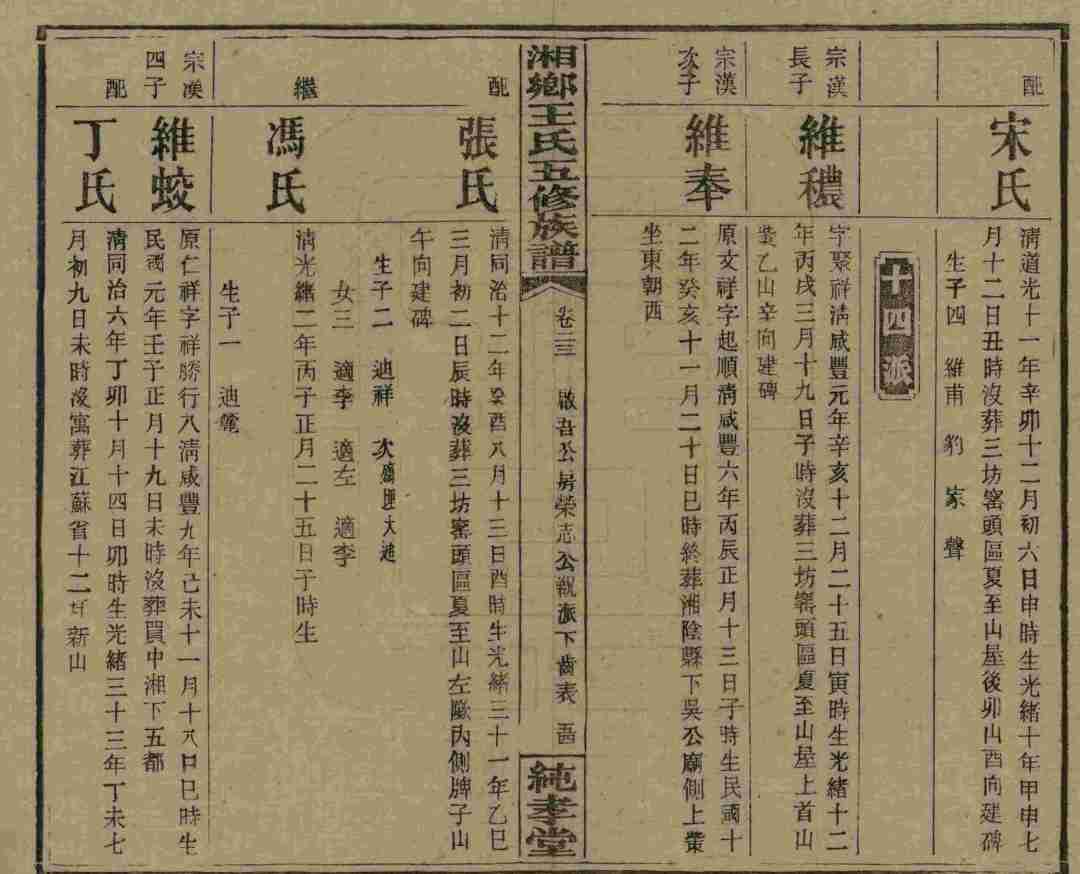 配
宋氏
清道光十一年辛卯十二月初六日申時生光緒十年甲申七
月十二日丑時沒葬三坊窰頭區夏至山屋後卯山酉向建碑
生子四 維甫 豹 家 聲
十四派
宗漢
長子
維穠
字聚祥清咸豐元年辛亥十二月二十五日寅時生光緒十二
年丙戌三月十九日子時沒葬三坊窰頭區夏至山屋上首山
塋乙山辛向建碑
宗漢
次子
維奉
原文祥字起順清咸豐六年丙辰正月十三日子時生民國十
二年癸亥十一月二十日巳時終葬湘陰縣下吳公廟側上塋
坐東朝西
湘鄉王氏五修族譜
卷二三 啟吾公房榮志公派下齒表
純孝堂
配
張氏
清同治十二年癸酉八月十三日酉時生光緒三十一年乙巳
三月初二日辰時沒葬三坊窰頭區夏至山左側牌子山
午向建碑
生子二 迪祥 次
女三 適李 適左 適李
繼
馮氏
清光緒二年丙子正月二十五日子時生
生子一 迪
宗漢
四子
維蛟
原仁祥字祥勝行八清咸豐九年己未十一月十八日巳時生
民國元年壬子正月十九日未時沒葬買中湘下五都
配
丁氏
清同治六年丁卯十月十四日卯時生光緒三十三年丁未七
月初九日未時沒寓葬江蘇省十二圩新山